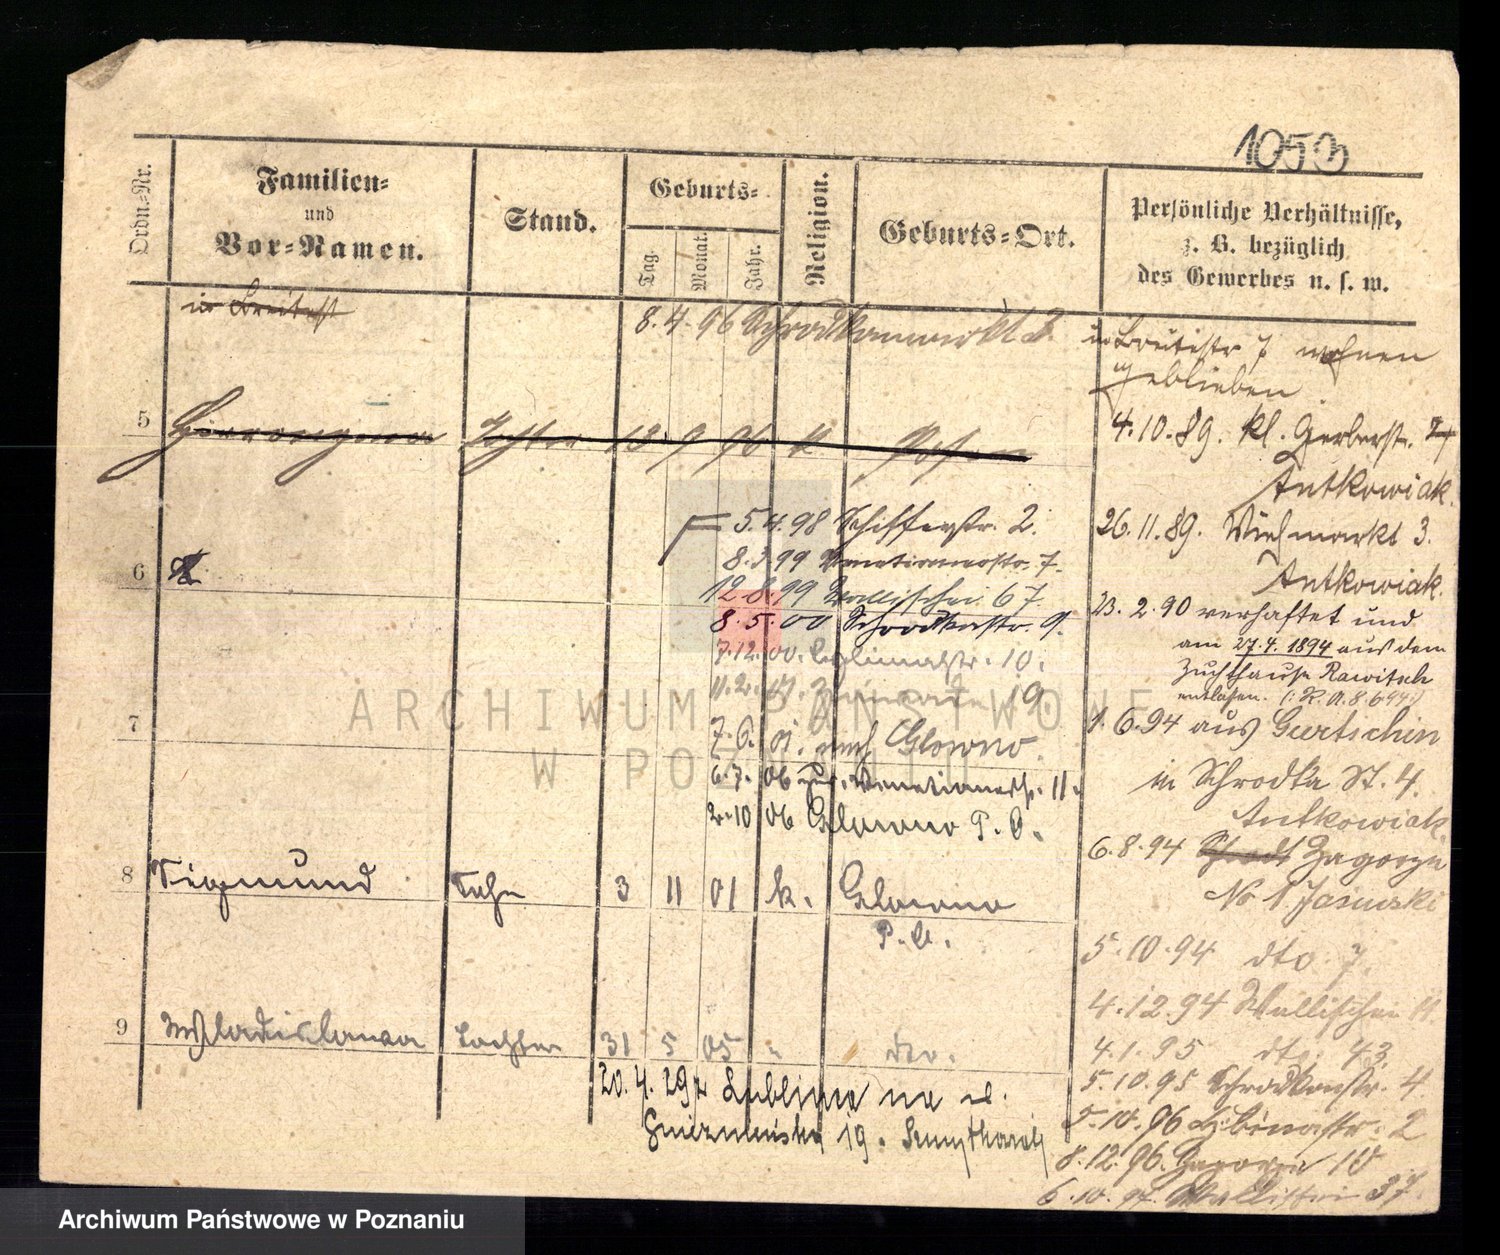 1053
Ordn.-Nr.
Familien-
und
Vor-Namen.
Stand.
Geburts-
Tag.
Monat.
Jahr.
Religion.
Geburts-Ort.
Persönliche Verhältnisse,
z. B. bezüglich
des Gewerbes u. s. w.
in Breitestr
8. 4. 96 Schrodkamarkt 2.
5
Tochter 13 9 96 k Posen
5. 4. 98 Schifferstr. 2.
8. 3. 99 Venetianerstr. 7.
6
12. 8. 99 Wallischei 67.
8. 5. 00 Schrodkastr. 9.
7. 12. 00. 10.
11. 2. 19.
7
7. 6. 01. nach Glowno.
6. 7. 06 Venetianerstr. 11.
2. 10 06 Glowno P. O.
8 Sigmund Sohn 3 11 01 k. Glowno
P. O.
9 Wladislawa Tochter 31 5 05 " dto.
20. 4. 29 z Lublina na ul.
Gnieznieńska 19.
in Breitestr 7 wohnen
geblieben.
4. 10. 89. Kl. Gerberstr. 7
Antkowiak.
26. 11. 89. Viehmarkt 3.
Antkowiak.
23. 2. 90 verhaftet und
am 27. 4. 1894 aus dem
Zuchthause Rawitsch
entlassen.
1. 6. 94 aus Gurtschin
in Schrodka St. 4.
Antkowiak
6. 8. 94 Stadt Zagorze
No 1 Jasinski
5. 10. 94 dto 7.
4. 12. 94 Wallischei 11.
4. 1. 95 dto. 43
5. 10. 95 Schrodkastr. 4
5. 10. 96 2
8. 12. 96. Zagorze 10
6. 10. 97. Wallischei 37
ARCHIWUM PAŃSTWOWE
W POZNANIU
Archiwum Państwowe w Poznaniu